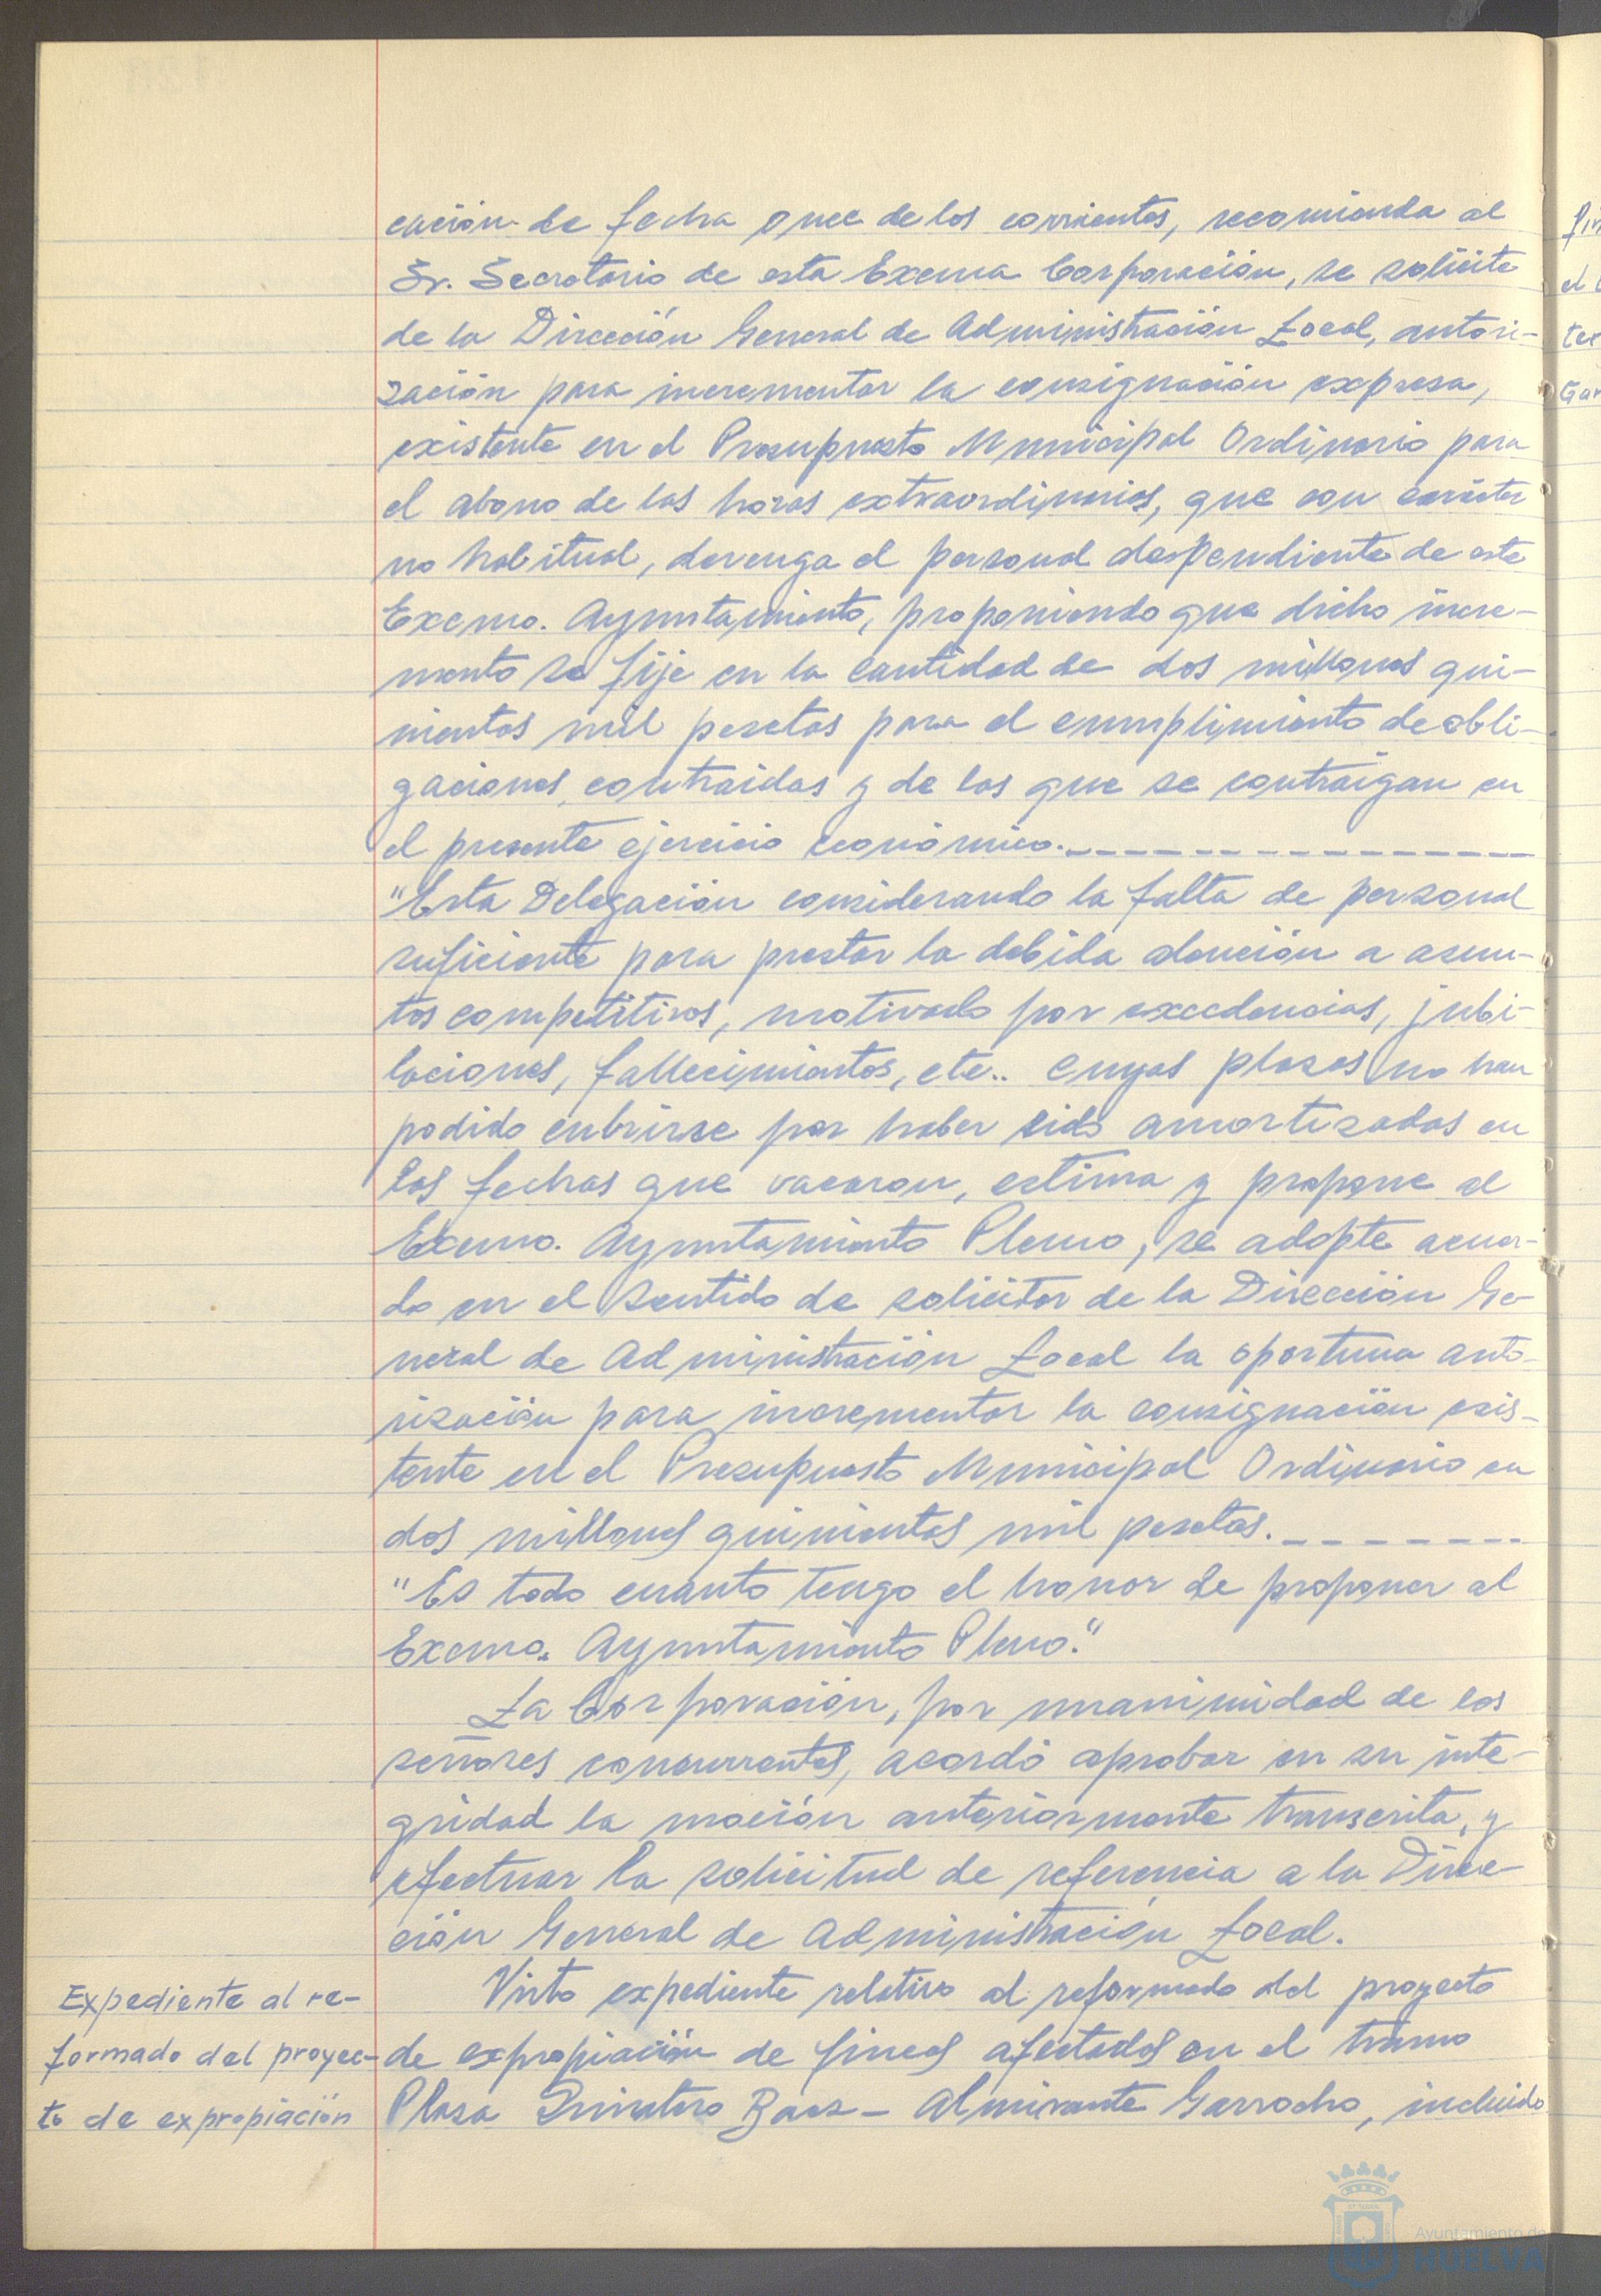 cación de fecha once de los corrientes, recomienda al
Sr. Secretario de esta Excma Corporación, se solicite
de la Dirección General de Administración Local, autori-
zación para incrementar la consignación expresa,
existente en el Presupuesto Municipal Ordinario para
el abono de las horas extraordinarias, que con carácter
no habitual, devenga el personal despendiente de este
Excmo. Ayuntamiento, proponiendo que dicho incre-
mento se fije en la cantidad de dos millones qui-
nientas mil pesetas para el cumplimiento de obli-
gaciones contraidas y de las que se contraigan en
el presente ejercicio económico.
"Esta Delegación considerando la falta de personal
suficiente para prestar la debida atención a asun-
tos competitivos, motivado por excedencias, jubi-
laciones, fallecimientos, etc.. cuyas plazas no han
podido cubrirse por haber sido amortizadas en
las fechas que vacaron, estima y propone al
Excmo. Ayuntamiento Pleno, se adopte acuer-
do en el sentido de solicitar de la Dirección Ge-
neral de Administración Local la oportuna auto-
rización para incrementar la consignación exis-
tente en el Presupuesto Municipal Ordinario en
dos millones quinientas mil pesetas.
"Es todo cuanto tengo el honor de proponer al
Excmo. Ayuntamiento Pleno."
La Corporación, por unanimidad de los
señores concurrentes, acordó aprobar en su inte-
gridad la moción anteriormente transcrita, y
efectuar la solicitud de referencia a la Direc-
ción General de Administración Local.
Expediente al re-
formado del proyec-
to de expropiación
Visto expediente relativo al reformado del proyecto
de expropiación de fincas afectadas en el tramo
Plaza Quintero Baez - Almirante Garrocho, incluido
Ayuntamiento de
HUELVA